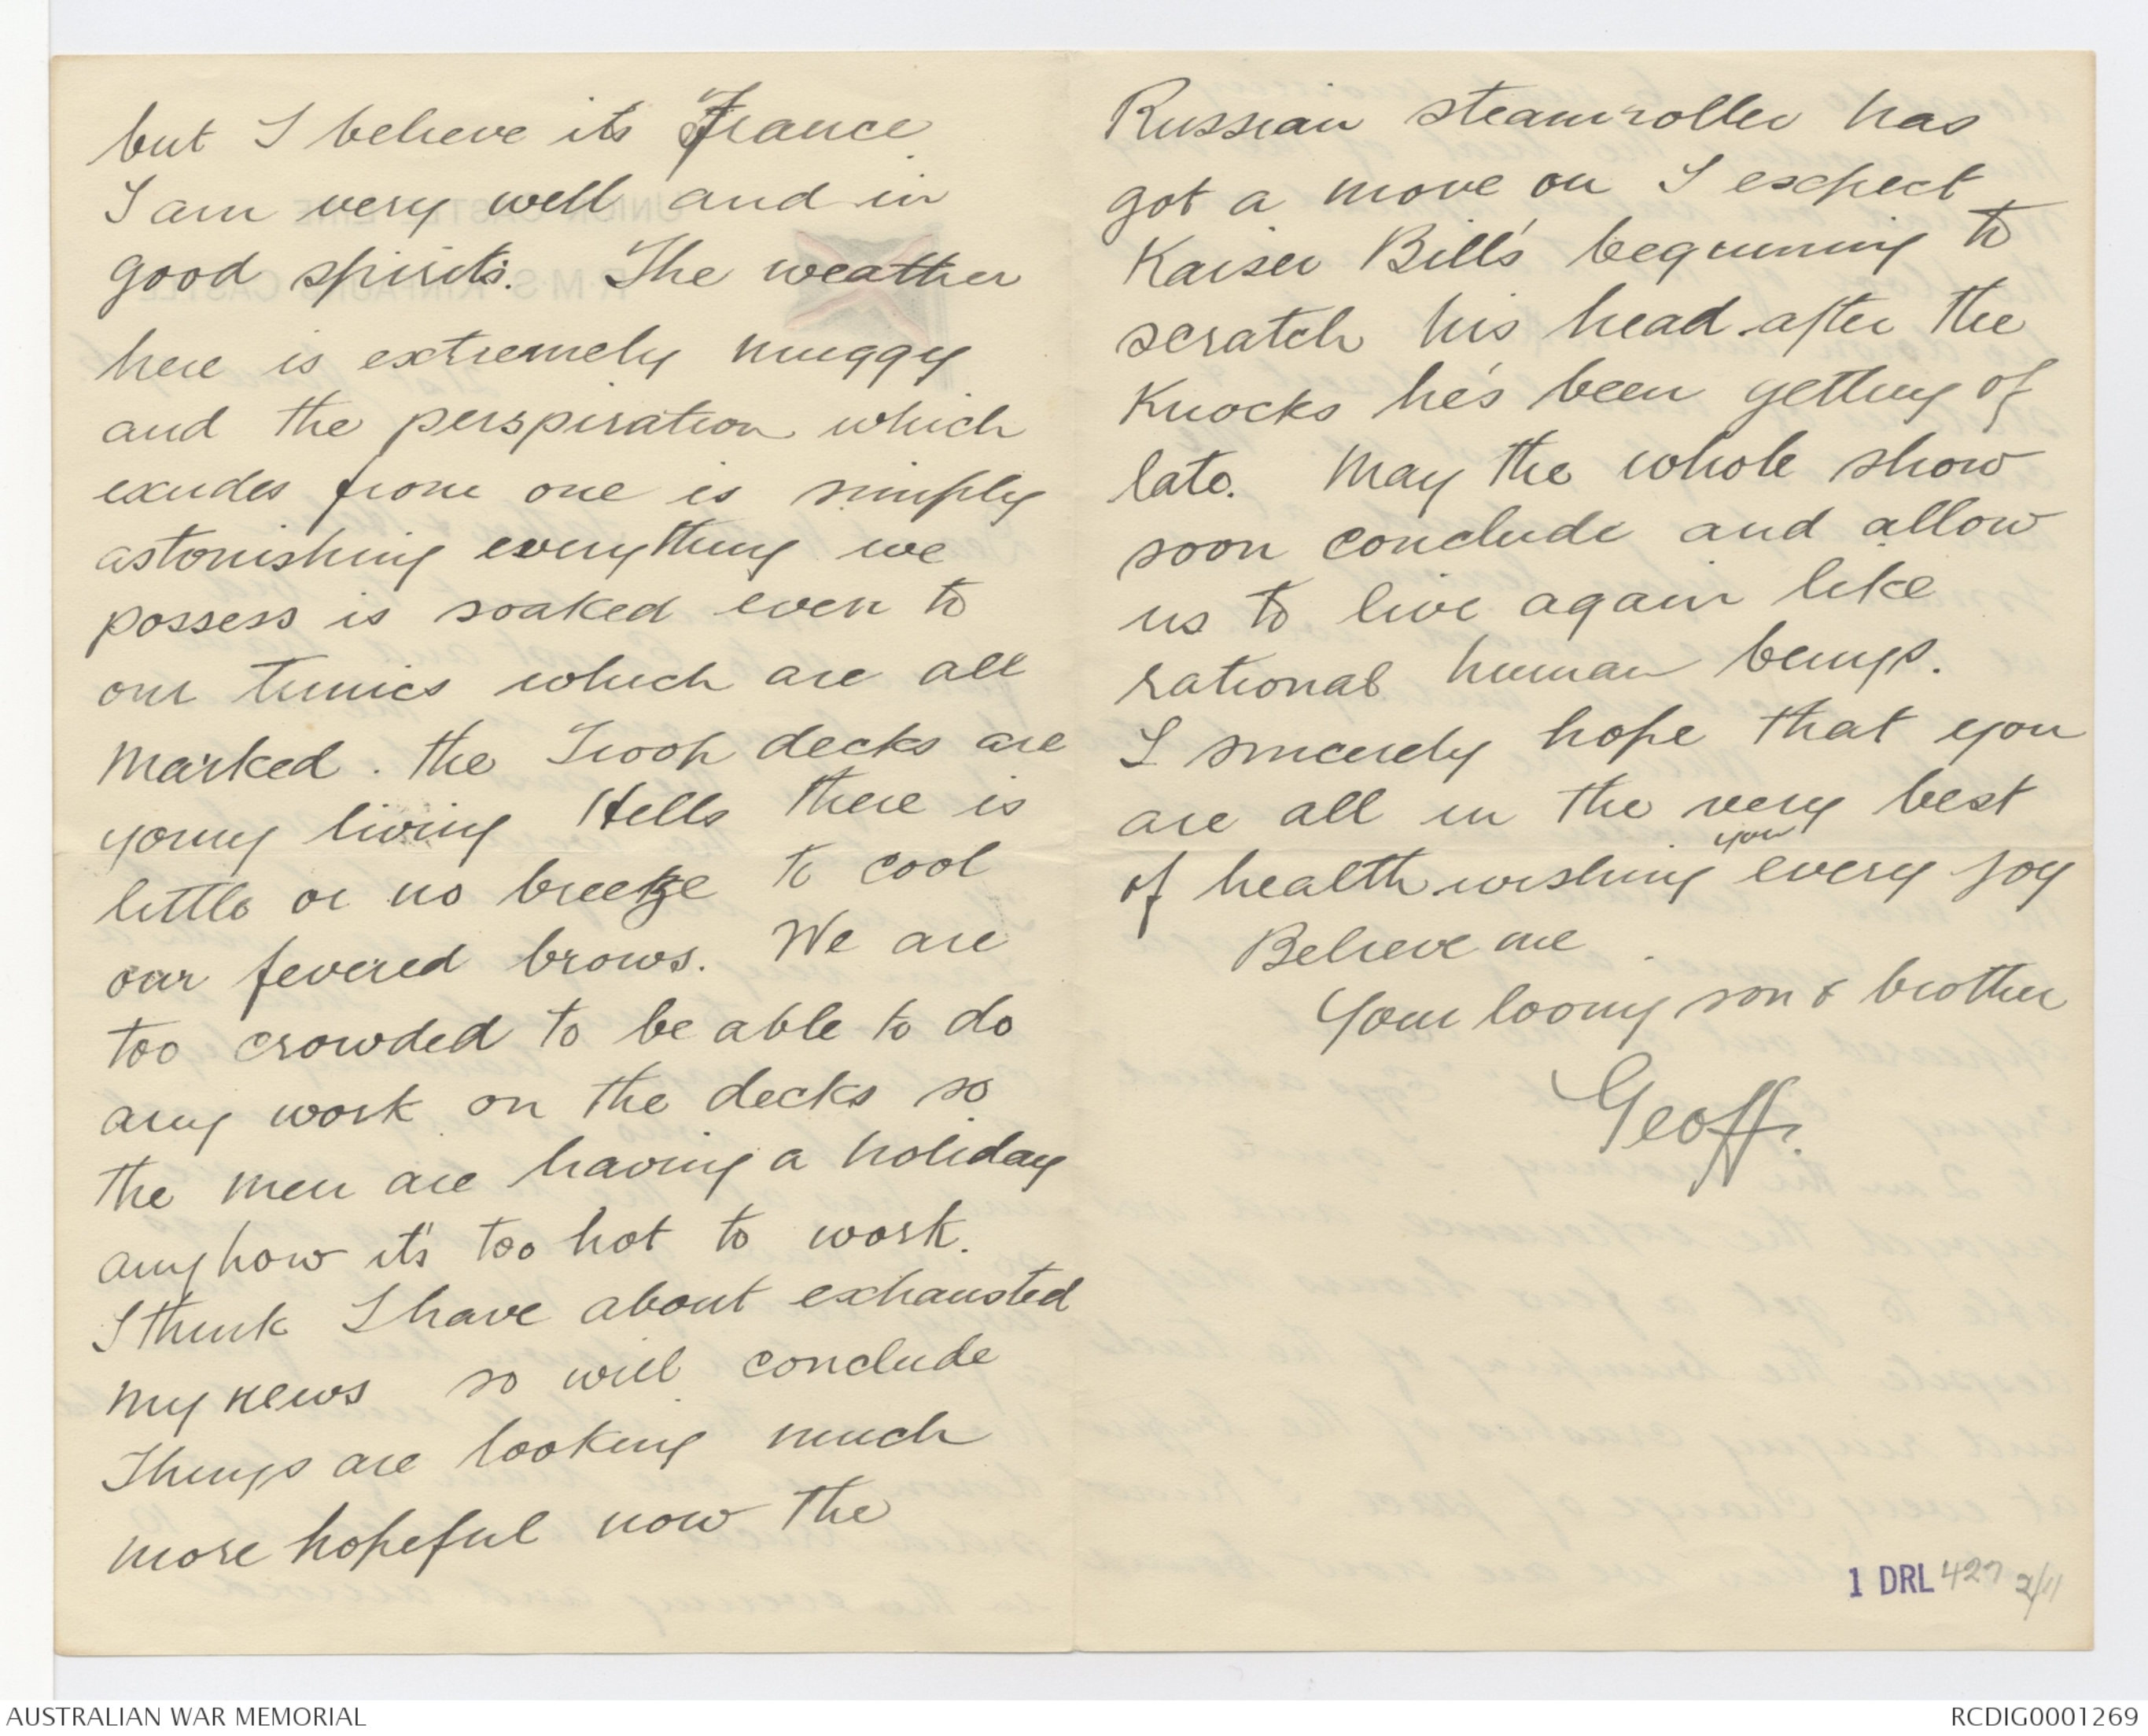 but I believe its France.
I am very well and in
good spirits. The weather
here is extremely muggy
and the perspiration which
exudes from one is simply
astonishing everything we
possess is soaked even to
our tunics which are all
marked. the Troop decks are
young living Hells there is
little or no breeze to cool
our fevered brows. We are
too crowded to be able to do
any work on the decks so
the men are having a holiday
anyhow it's too hot to work.
I think I have about exhausted
my news so will conclude
Things are looking much
more hopeful now the
Russian steamroller has
got a move on I expect
Kaiser Bill's beginning to
scratch his head after the
knocks he's been getting of
late. May the whole show
soon conclude and allow
us to live again like
rational human beings.
I sincerely hope that you
are all in the very best
of health wishing you every joy
Believe me
Your loving son & brother
Geoff.
1 DRL 427 2/11
AUSTRALIAN WAR MEMORIAL
RCDIG0001269